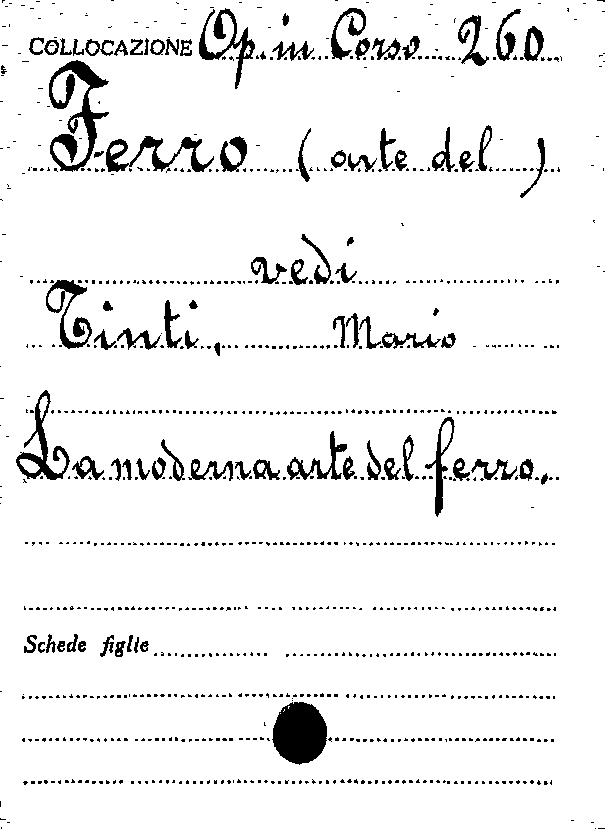 COLLOCAZIONE Op. in Corso 260
Ferro (arte del)
vedi
Tinti, Mario
La moderna arte del ferro.
Schede figlie